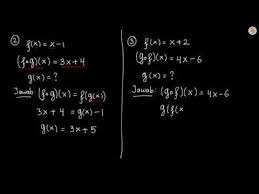 ② f(x) = x - 1
(f∘g)(x) = 3x + 4
g(x) = ?
Jawab: (f∘g)(x) = f(g(x))
3x + 4 = g(x) - 1
g(x) = 3x + 5
③ f(x) = x + 2
(g∘f)(x) = 4x - 6
g(x) = ?
Jawab: (g∘f)(x) = 4x - 6
g(f(x